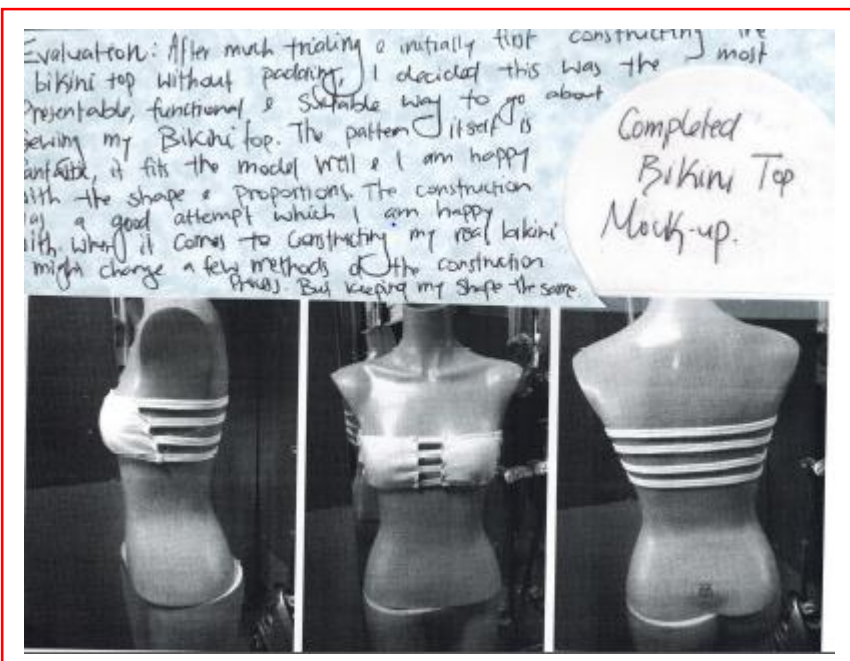 Evaluation: After much trialing & initially first constructing the
bikini top without padding, I decided this was the most
Presentable, functional & Suitable way to go about
sewing my Bikini top. The pattern itself is
fantastic, it fits the model well & I am happy
with the shape & proportions. The construction
was a good attempt which I am happy
with. When it comes to constructing my real bikini
I might change a few methods of the construction
Process. But keeping my shape the same.
Completed
Bikini Top
Mock-up.